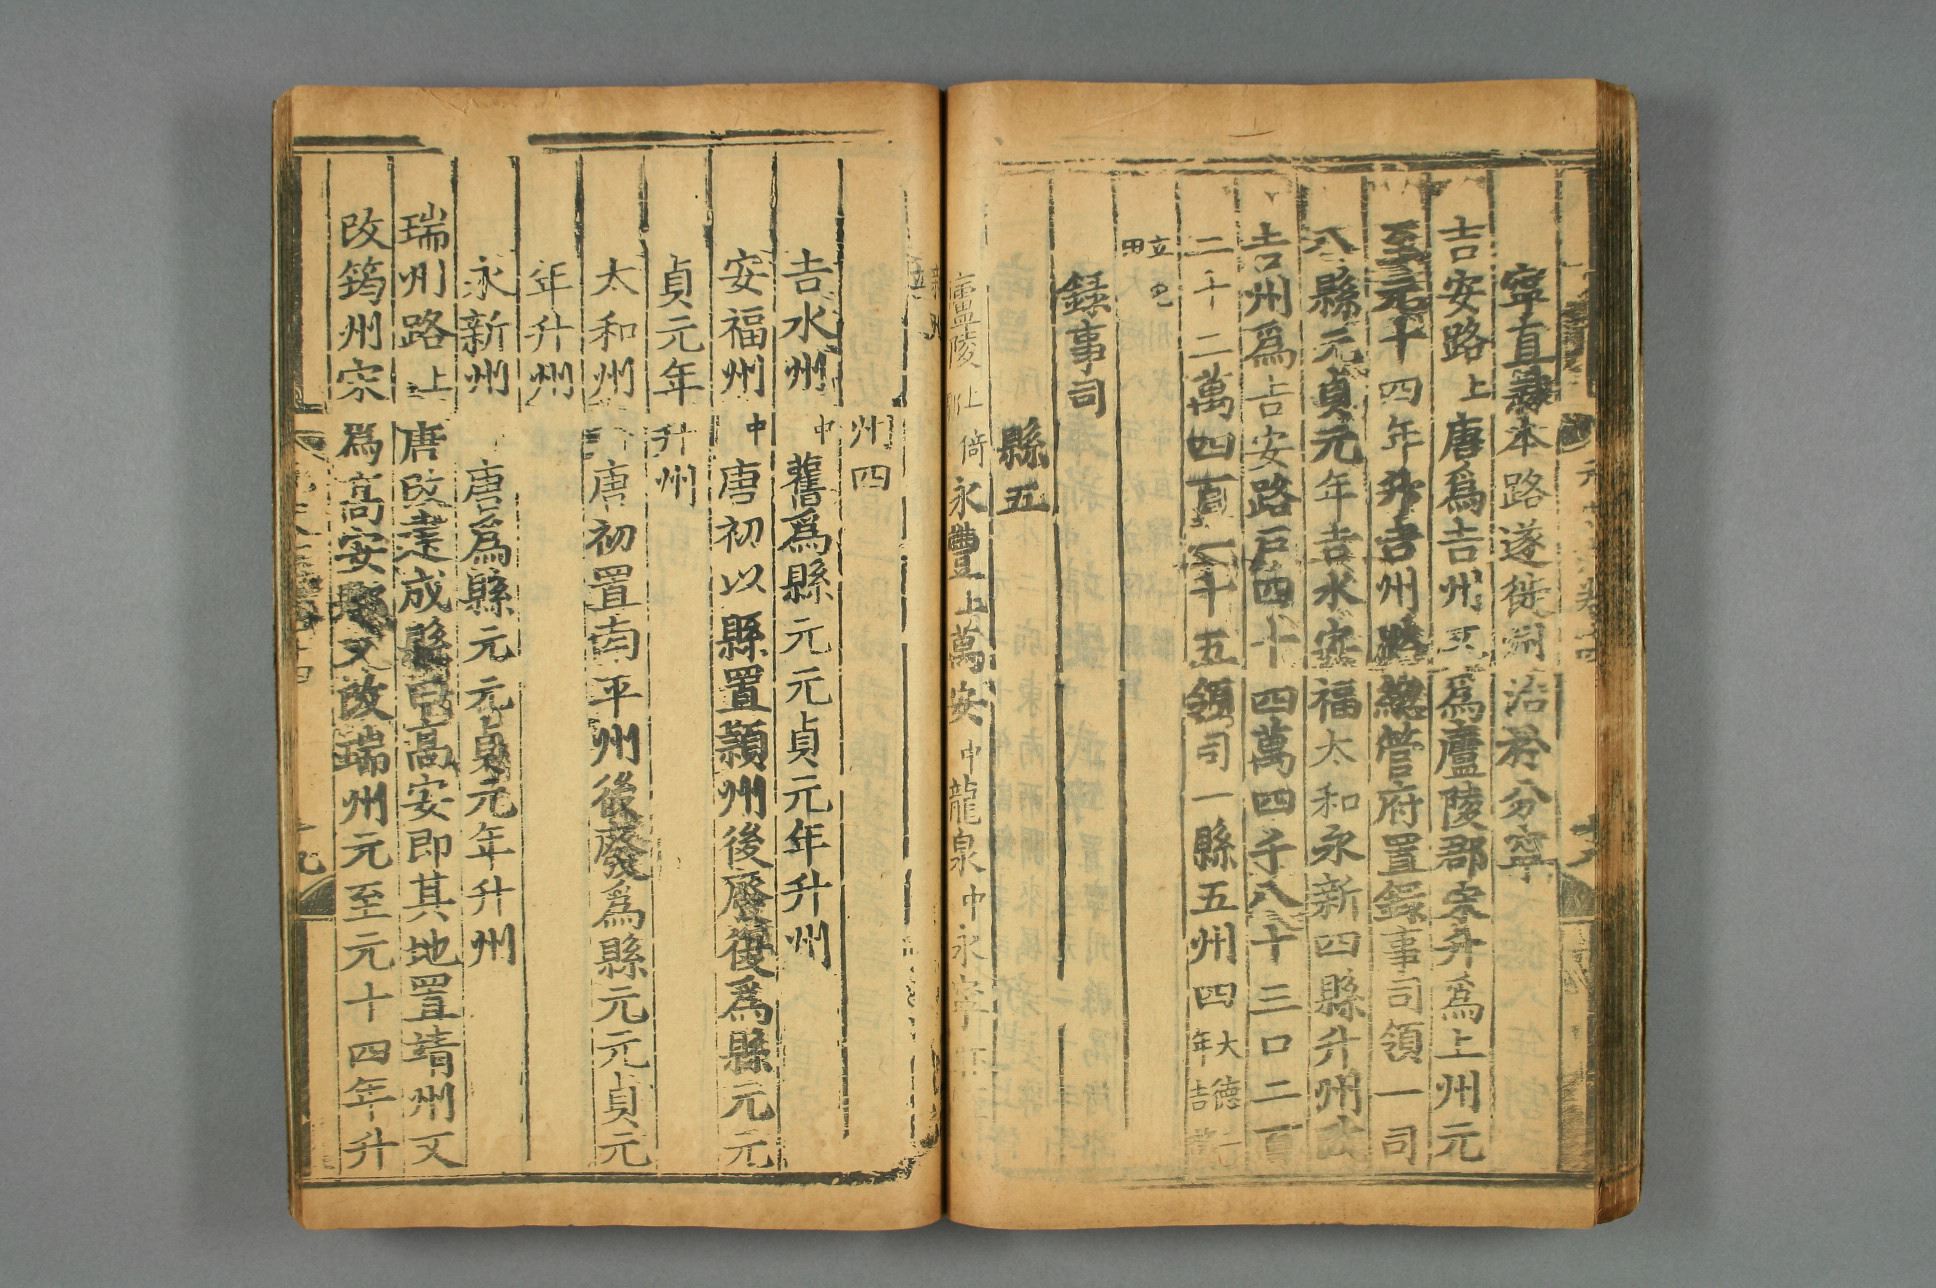 寧直隸本路遂徙州治於分寧
吉安路上唐爲吉州又爲廬陵郡宋升爲上州元
至元十四年升吉州路總管府置錄事司領一司
八縣元貞元年吉水安福太和永新四縣升州改
吉州爲吉安路戶四十四萬四千八十三口二百
二十二萬四百一十五領司一縣五州四大德二年吉
立屯田
錄事司
縣五
廬陵上倚郭永豐上萬安中龍泉中永寧
州四
吉水州中舊爲縣元元貞元年升州
安福州中唐初以縣置潁州後廢復爲縣元元
貞元年升州
太和州唐初置南平州後廢爲縣元元貞元
年升州
永新州唐爲縣元元貞元年升州
瑞州路上唐改建成縣曰高安即其地置靖州又
改筠州宋爲高安郡又改瑞州元至元十四年升